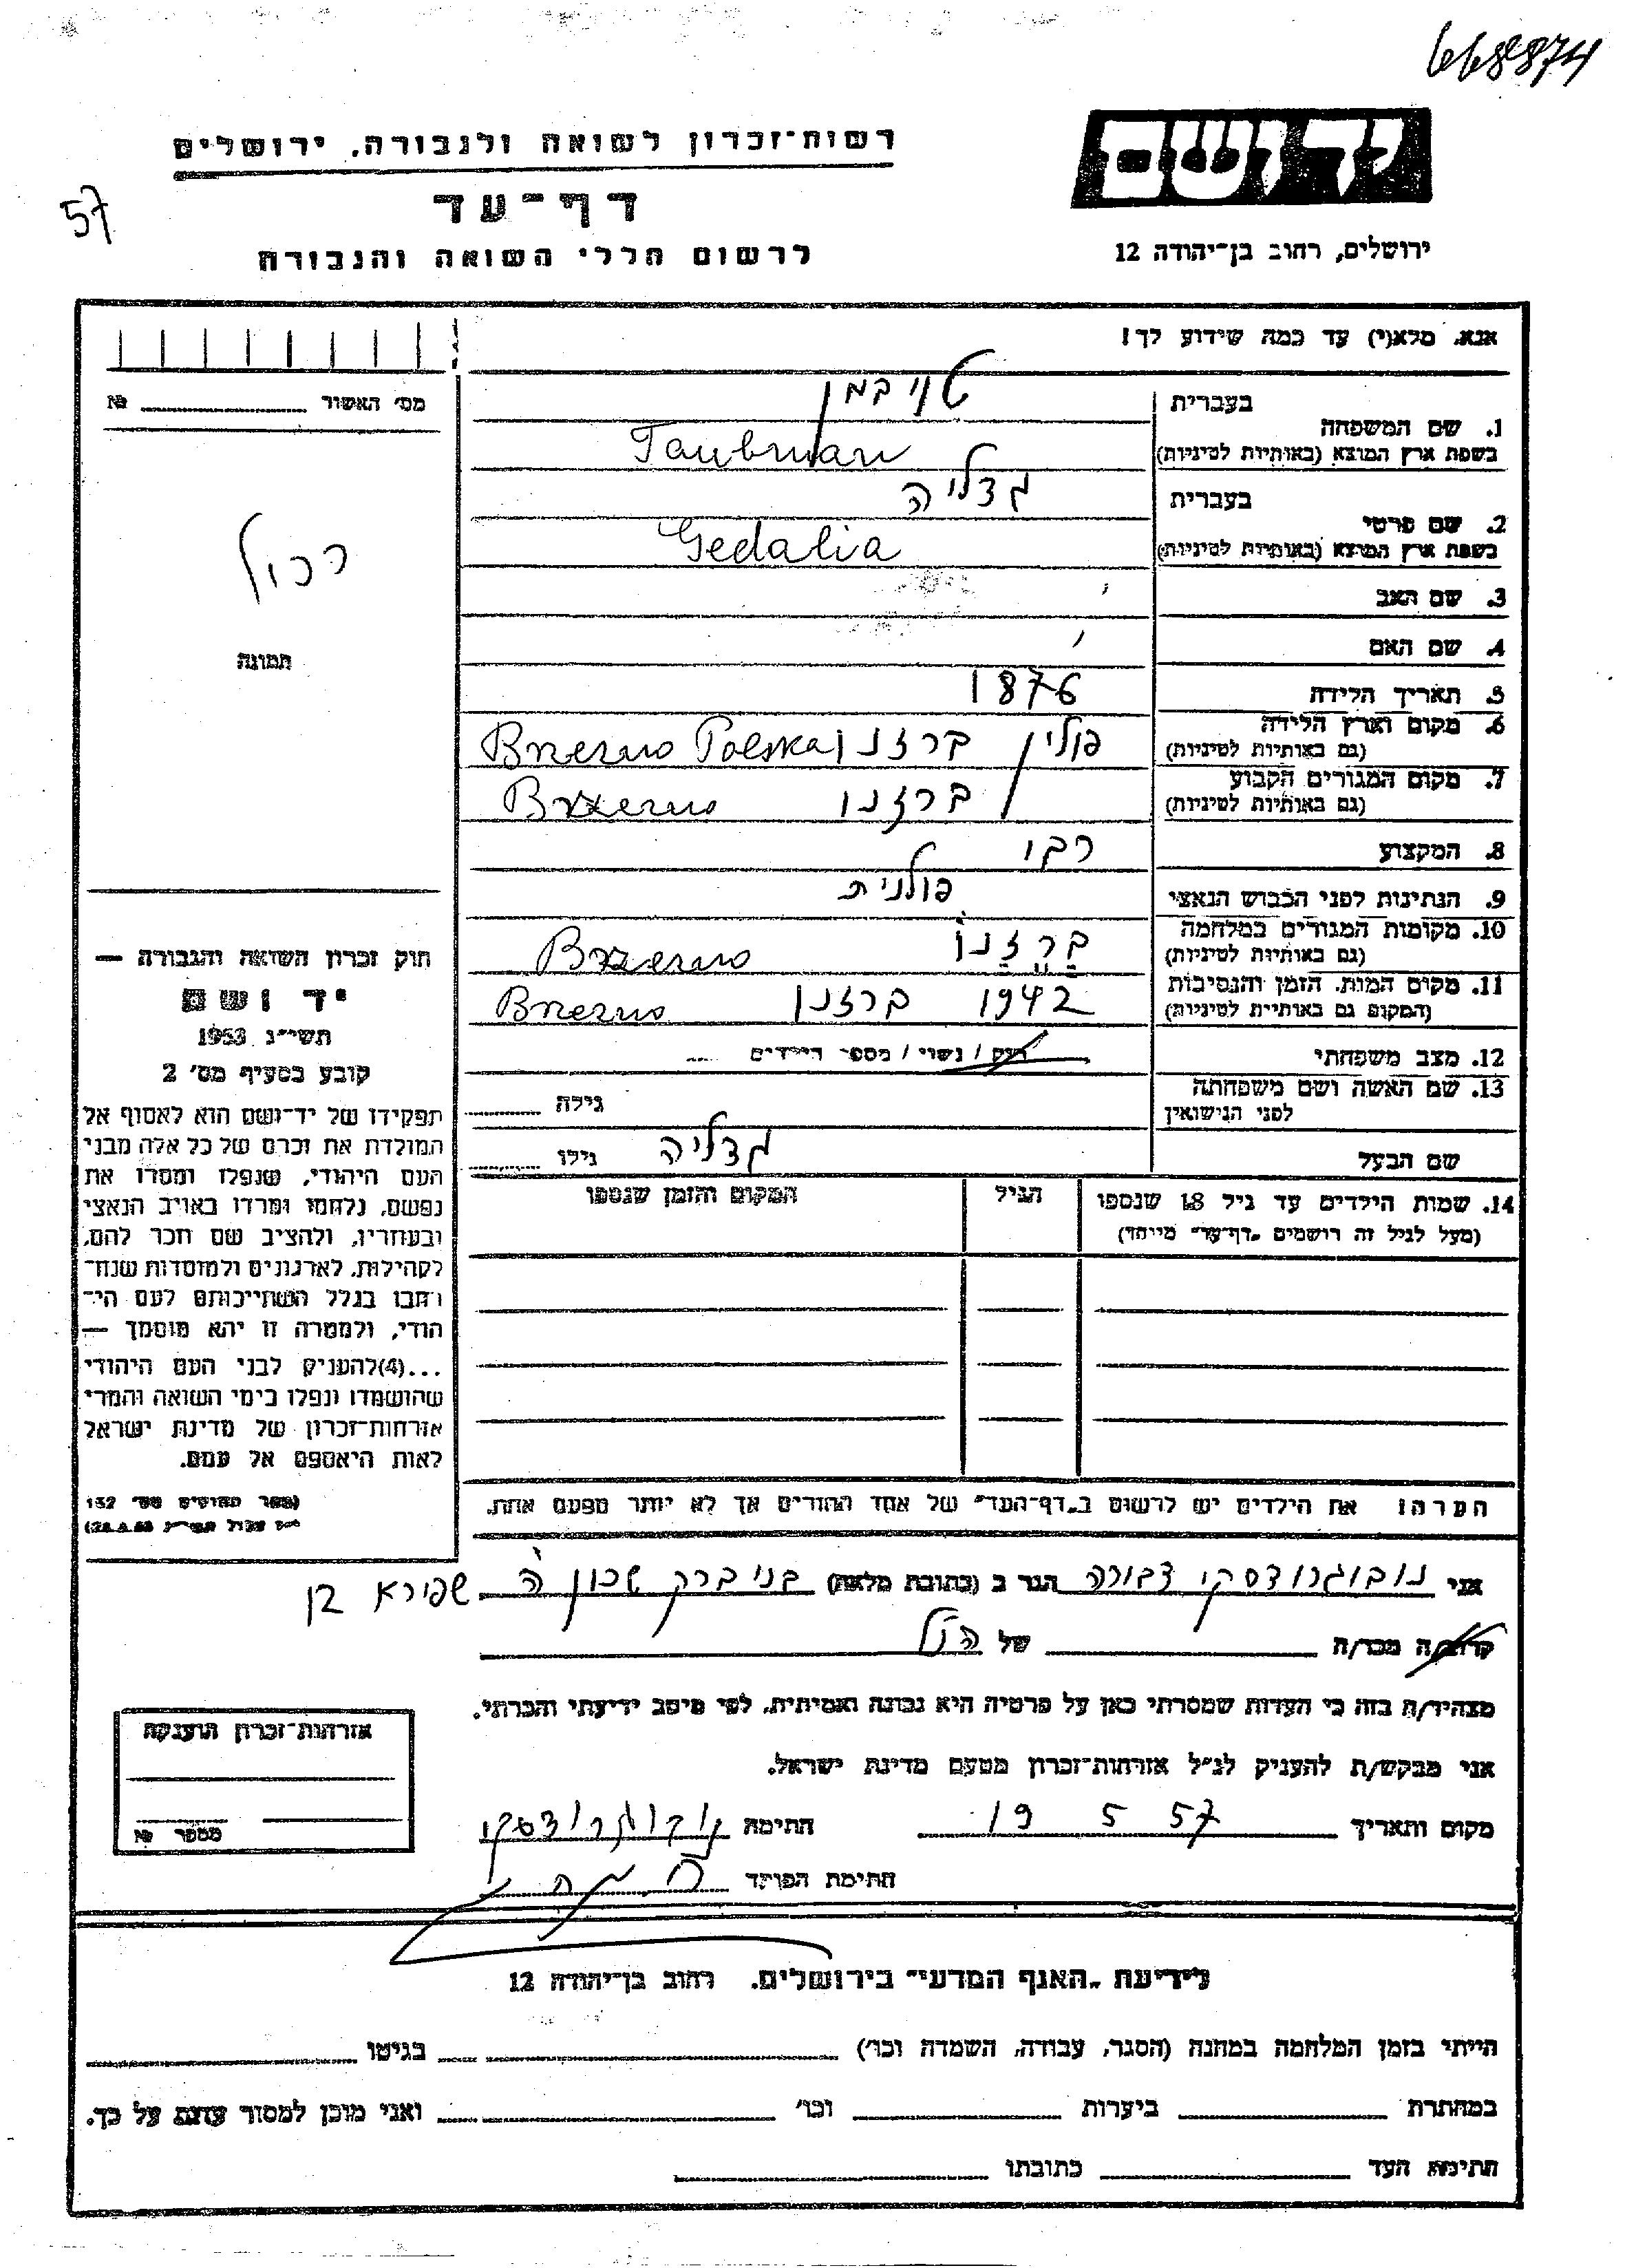 668874
יד ושם
רשות־זכרון לשואה ולגבורה, ירושלים
דף־עד
57
לרשום חללי השואה והגבורה
ירושלים, רחוב בן־יהודה 12
אנא, מלא(י) עד כמה שידוע לך!
בעברית טויבמן
1. שם המשפחה
בשפת ארץ המוצא (באותיות לטיניות) Taubman
בעברית גדליה
2. שם פרטי
בשפת ארץ המוצא (באותיות לטיניות) Gedalia
3. שם האב
4. שם האם
5. תאריך הלידה 1876
6. מקום וארץ הלידה
(גם באותיות לטיניות) פולין ברזנו Brzezno Polska
7. מקום המגורים הקבוע
(גם באותיות לטיניות) ברזנו Brzezno
8. המקצוע
9. הנתינות לפני הכבוש הנאצי פולנית
10. מקומות המגורים במלחמה
(גם באותיות לטיניות) ברזנו Brzezno
11. מקום המות, הזמן והנסיבות
(המקום גם באותיות לטיניות) 1942 ברזנו Brzezno
12. מצב משפחתי רוק / נשוי / מספר הילדים
13. שם האשה ושם משפחתה
לפני הנישואין גילה
שם הבעל גדליה גילו
14. שמות הילדים עד גיל 18 שנספו הגיל המקום והזמן שנספו
(מעל לגיל זה רושמים "דף־עד" מיוחד)
הערה! את הילדים יש לרשום ב"דף־העד" של אחד ההורים אך לא יותר מפעם אחת.
מס' האשור №
תמונה
חוק זכרון השואה והגבורה —
יד ושם
תשי״ג 1953
קובע בסעיף מס' 2
תפקידו של יד־ושם הוא לאסוף אל
המולדת את זכרם של כל אלה מבני
העם היהודי, שנפלו ומסרו את
נפשם, נלחמו ומרדו באויב הנאצי
ובעוזריו, ולהציב שם וזכר להם,
לקהילות, לארגונים ולמוסדות שנח־
רבו בגלל השתייכותם לעם הי־
הודי, ולמטרה זו יהא מוסמך —
...(4)להעניק לבני העם היהודי
שהושמדו ונפלו בימי השואה והמרי
אזרחות־זכרון של מדינת ישראל
לאות היאספם אל עמם.
(ספר החוקים מס' 132
אני נובוגרודסקי דבורה הגר ב (כתובת מלאה) בני ברק שכון ה' שפירא
קרוב/ה מכר/ה של הנ״ל
מצהיר/ה בזה כי העדות שמסרתי כאן על פרטיה היא נכונה ואמיתית, לפי מיטב ידיעתי והכרתי.
אני מבקש/ת להעניק לנ״ל אזרחות־זכרון מטעם מדינת ישראל.
מקום ותאריך 19 5 57 חתימה נובוגרודסקי
חתימת הפוקד
אזרחות־זכרון הוענקה
מספר №
לידיעת "האגף המדעי" בירושלים. רחוב בן־יהודה 12
הייתי בזמן המלחמה במחנה (הסגר, עבודה, השמדה וכו') בגיטו
במחתרת ביערות וכו' ואני מוכן למסור עדות על כך.
חתימת העד כתובתו